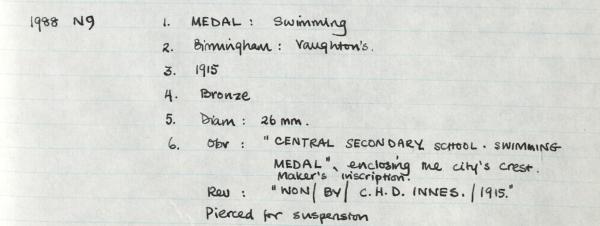 1988 N9 1. MEDAL : Swimming
2. Birmingham : Vaughton's.
3. 1915
4. Bronze
5. Diam : 26 mm.
6. Obv : "CENTRAL SECONDARY SCHOOL · SWIMMING
MEDAL", enclosing the city's crest.
Maker's inscription.
Rev : "WON/ BY/ C.H.D. INNES. / 1915."
Pierced for suspension